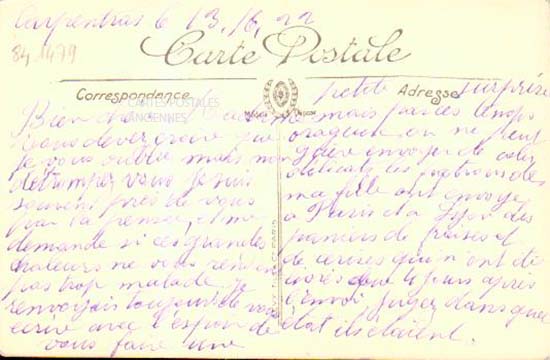 Carpentras le 13/6/22
84 1479
Carte Postale
Correspondance
Adresse
CARTES POSTALES
ANCIENNES
Bien chère
vous devez croire que
je vous oublie mais non
détrompez vous je suis
souvent près de vous
par la pensée, et me
demande si ces grandes
chaleurs ne vous rendent
pas trop malade je
renvoyais toujours de vous
écrire avec l'espoir de
vous faire une
petite surprise
mais par ces temps
orageux on ne peut
guère envoyer de colis
les patrons de
ma fille ont envoyé
à Paris et a Lyon des
paniers de fraises et
de cerises qui n'ont été
livrés que 4 jours après
l'envoi jugez dans quel
état ils étaient.